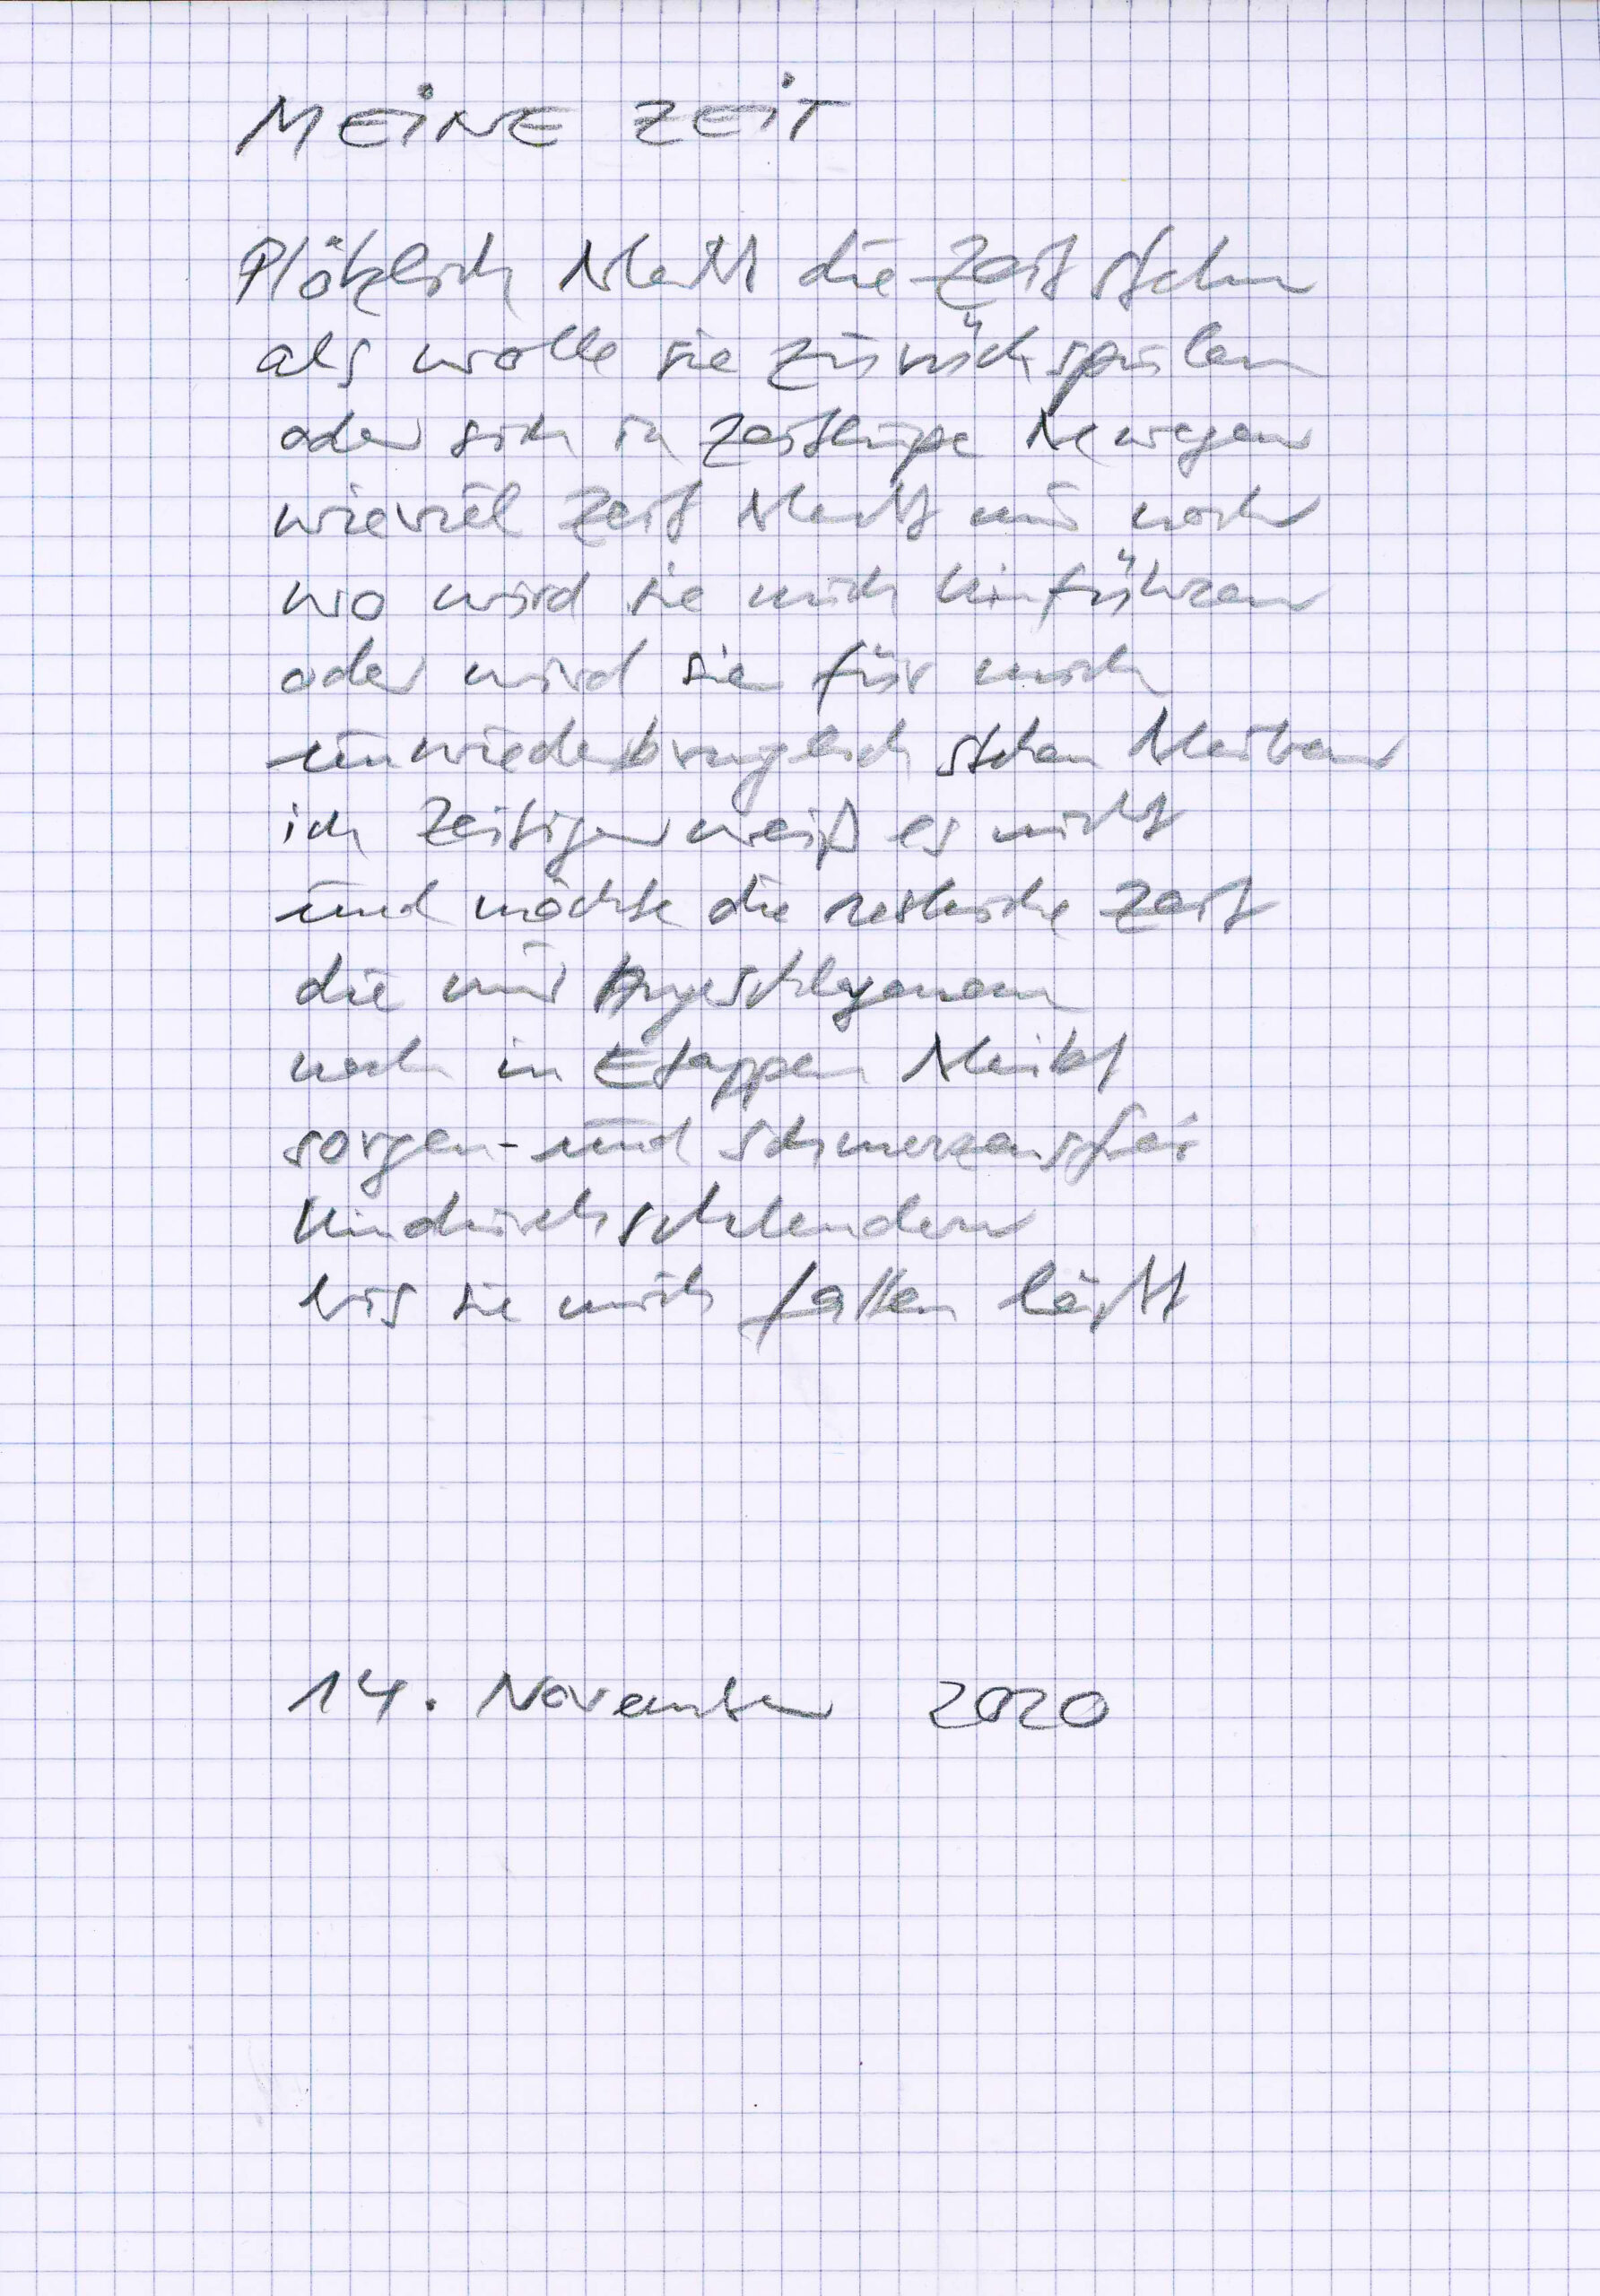 MEINE ZEIT
Plötzlich bleibt die Zeit stehn
als wolle sie zurückspulen
oder sich in Zeitlupe bewegen
wieviel Zeit bleibt mir noch
wo wird sie mich hinführen
oder wird sie für mich
unwiederbringlich stehen bleiben
ich Zeitiger weiß es nicht
und möchte die restliche Zeit
die mir Angeschlagenem
noch in Etappen bleibt
sorgen- und schmerzensfrei
hindurchschlendern
bis sie mich fallen läßt
14. November 2020